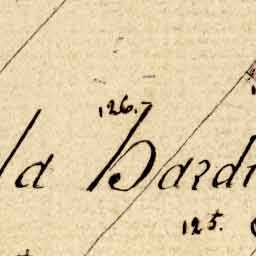 126.
la hardi
125.